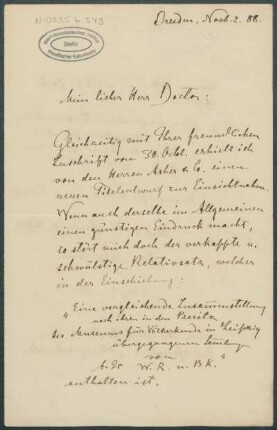 N-0035 b 345
Dresden, Novb. 2. 88.
Mein lieber Herr Doctor:
Gleichzeitig mit Ihrer freundlichen
Zuschrift vom 30. Octob. erhielt ich
von den Herren Asher & Co. einen
neuen Titelentwurf zur Einsichtnahme.
Wenn auch derselbe im Allgemeinen
einen günstigen Eindruck macht,
so stört mich doch der verkappte u.
schwülstige Relativsatz, welcher
in der Einschiebung:
"Eine vergleichende Zusammenstellung
nach ihrer in den Besitz
des Museums für Völkerkunde in Leipzig
übergegangenen Sammlungen
von
W. R. u. B K."
enthalten ist.